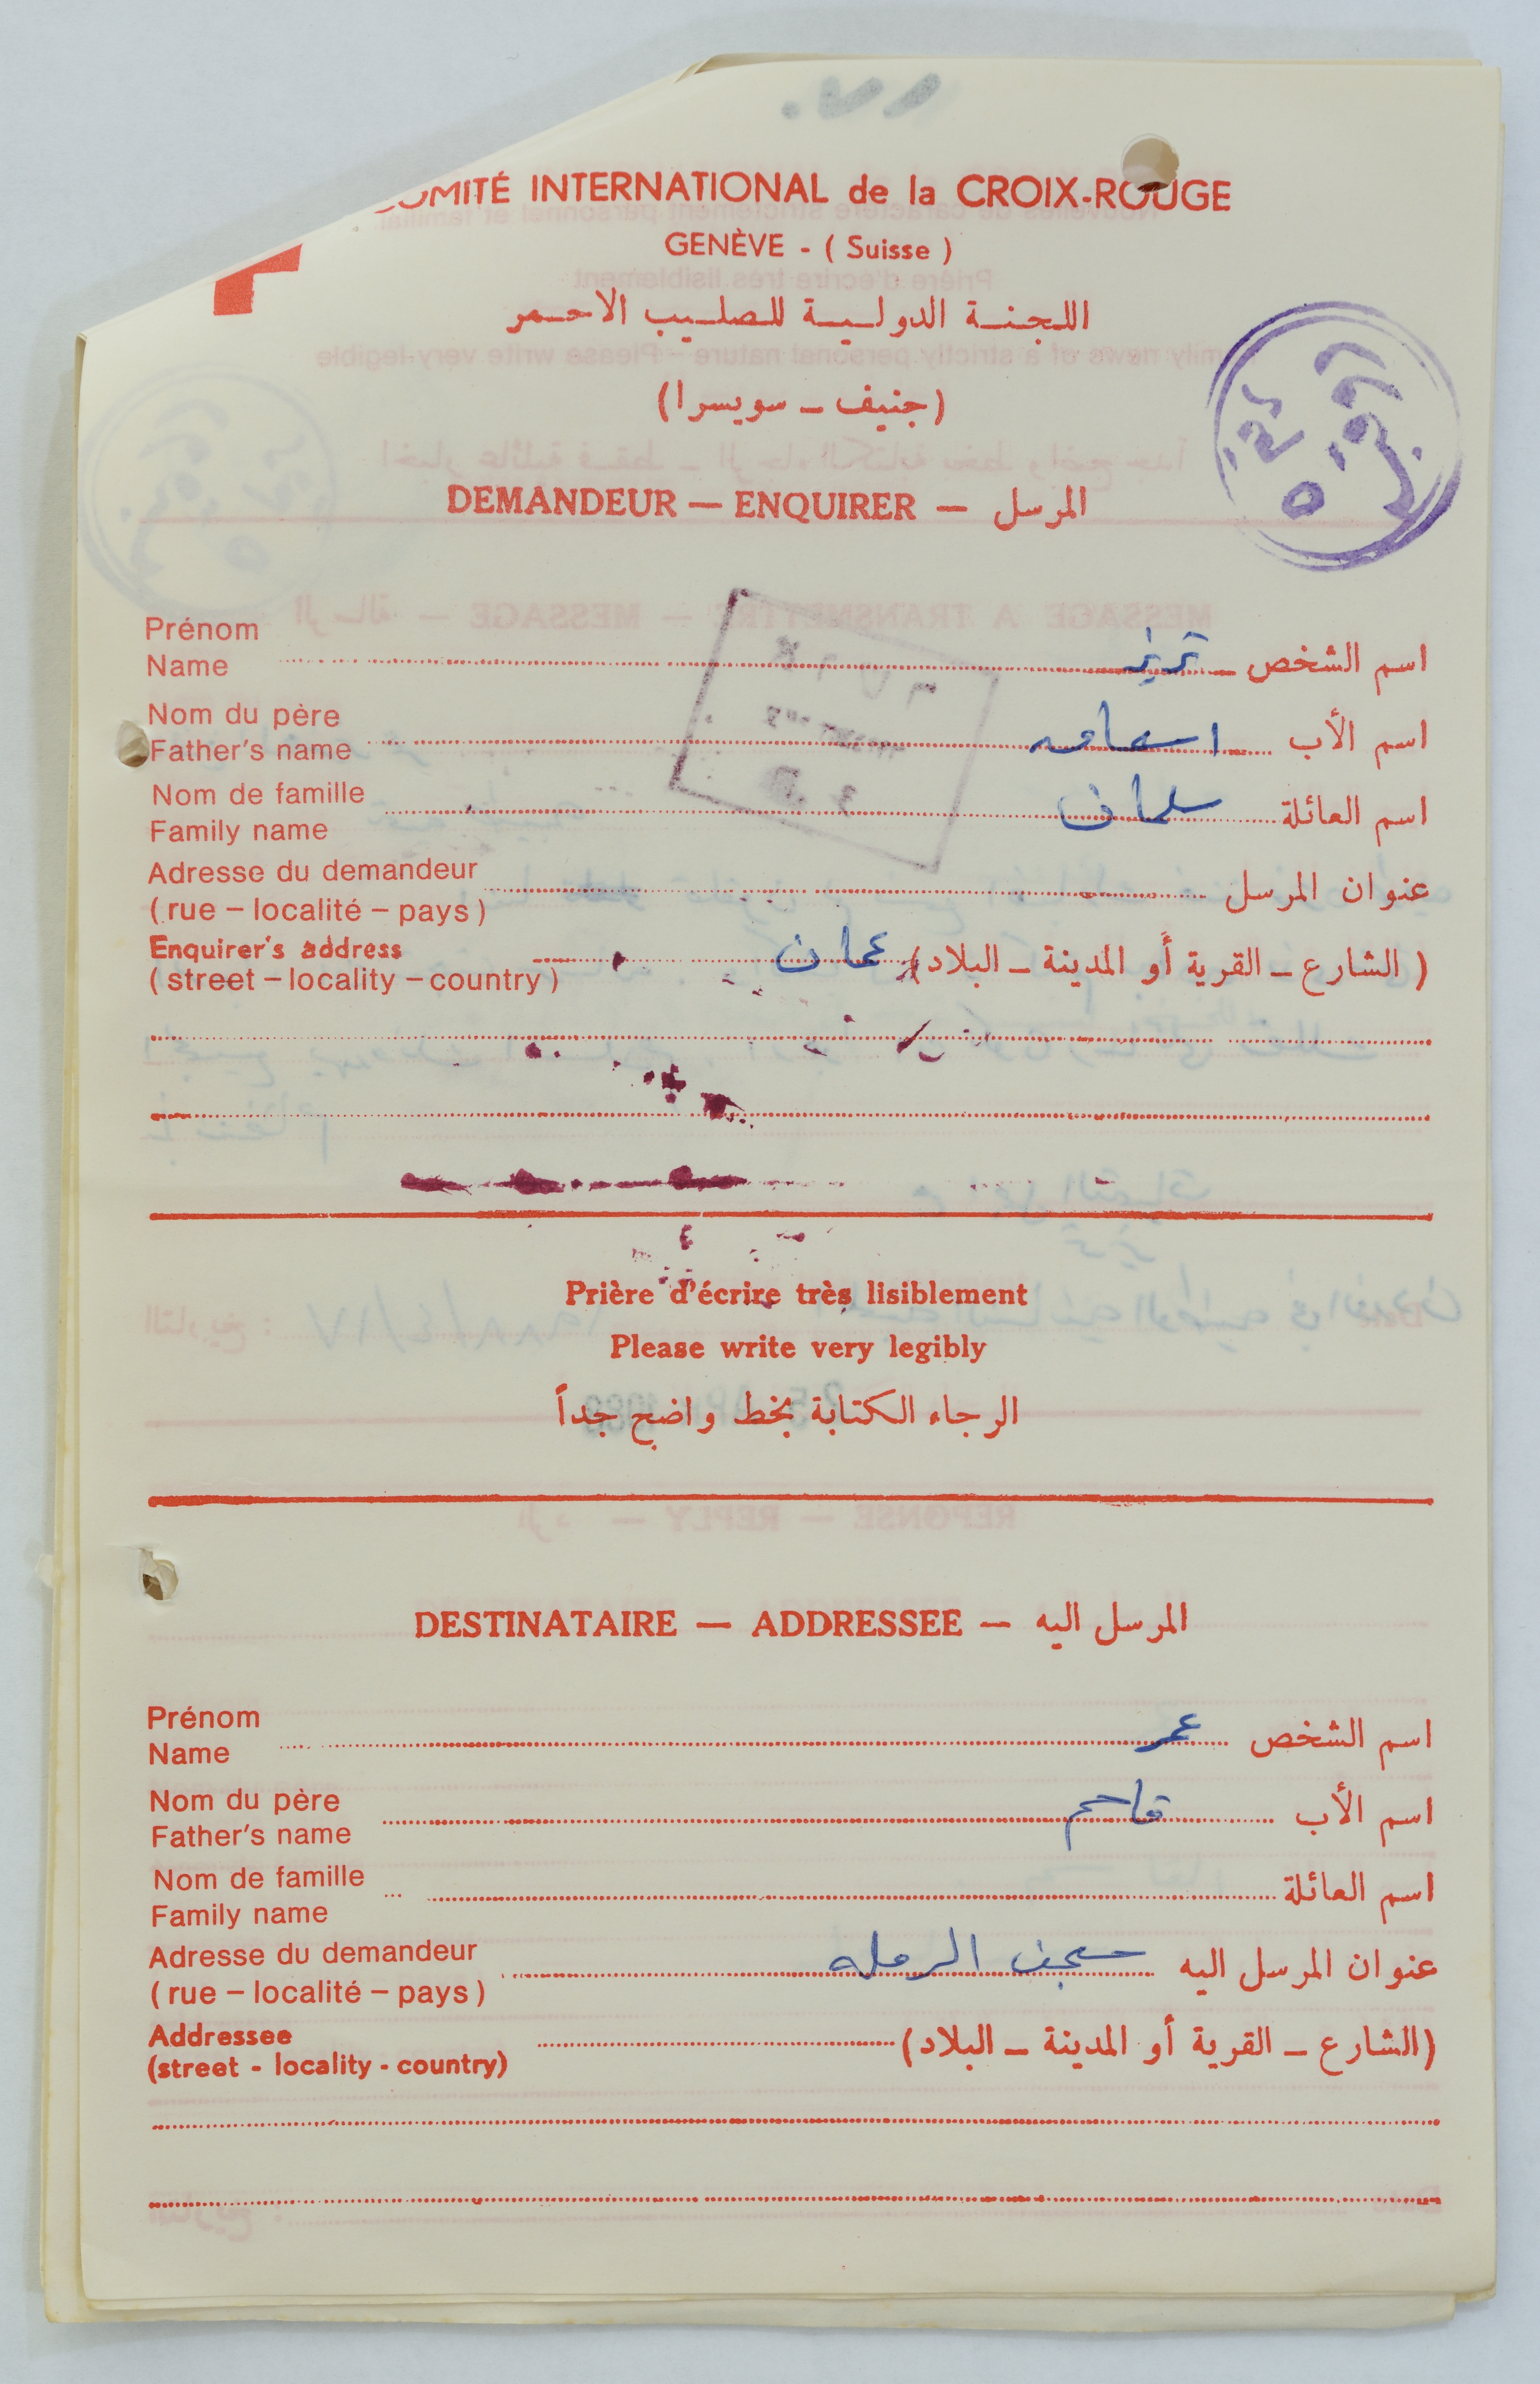 COMITÉ INTERNATIONAL de la CROIX-ROUGE
GENÈVE - ( Suisse )
اللجنة الدولية للصليب الاحمر
(جنيف - سويسرا)
DEMANDEUR — ENQUIRER — المرسل
Prénom
Name
اسم الشخص
Nom du père
Father's name
اسم الأب
Nom de famille
Family name
اسم العائلة سلمان
Adresse du demandeur
(rue – localité – pays)
عنوان المرسل
Enquirer's address
(street – locality – country)
(الشارع - القرية أو المدينة - البلاد) عمان
Prière d'écrire très lisiblement
Please write very legibly
الرجاء الكتابة بخط واضح جداً
DESTINATAIRE — ADDRESSEE — المرسل اليه
Prénom
Name
اسم الشخص عمر
Nom du père
Father's name
اسم الأب قاسم
Nom de famille
Family name
اسم العائلة
Adresse du demandeur
(rue – localité – pays)
عنوان المرسل اليه سجن الرمله
Addressee
(street - locality - country)
(الشارع - القرية أو المدينة - البلاد)